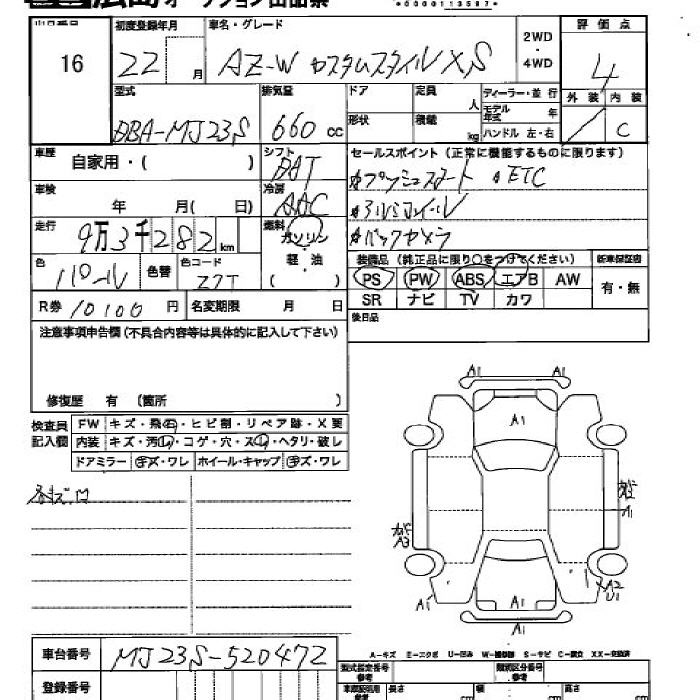 広島 オークション出品票
*0000113597*
出品番号 初度登録年月 車名・グレード 2WD・4WD 評価点
16 22 月 AZ-W カスタムスタイル XS 4
外装 内装 C
型式 DBA-MJ23S 排気量 660 cc
ドア 定員 人 ディーラー・並行
モデル年式 年
形状 積載 kg ハンドル 左・右
車歴 自家用・( ) シフト DAT
セールスポイント(正常に機能するものに限ります)
車検 年 月( 日) 冷房 AAC
#プッシュスタート #ETC
#アルミホイール
#バックカメラ
走行 9万3千282 km 燃料 ガソリン・軽油 ( )
色 パール 色替 色コード Z7T
装備品(純正品に限り○をつけてください) 新車保証書
PS PW ABS エアB AW 有・無
SR ナビ TV カワ
R券 10100 円 名変期限 月 日
後日品
注意事項申告欄(不具合内容等は具体的に記入して下さい)
修復歴 有 (箇所 )
検査員記入欄 FW キズ・飛石・ヒビ割・リペア跡・X要
内装 キズ・汚れ・コゲ・穴・スレ・ヘタリ・破レ
ドアミラー キズ・ワレ ホイール・キャップ キズ・ワレ
A1 A1
A1
A1
A3
A1
A2
U1
A1
A1
A-キズ E-エクボ U-凹み W-補修跡 S-サビ C-腐食 XX-交換済
車台番号 MJ23S-520472
型式指定番号 参考 類別区分番号 参考
登録番号
長さ cm 幅 cm 高さ cm